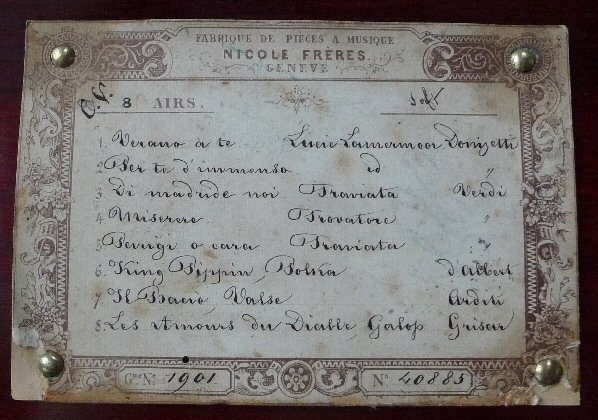 FABRIQUE DE PIÈCES À MUSIQUE
NICOLE FRÈRES.
GENÈVE
O.V. 8 AIRS. Soft
1. Verano a te Lucie Lamermoor Donizetti
2 Per te d'immenso id "
3. Di madride noi Traviata Verdi
4 Miserere Trovatore "
5 Parigi o cara Traviata "
6. King Pippin Polka d'Albert
7 Il Bacio, Valse Arditi
8 Les Amours du Diable Galop Grisar
Gme No. 1901 No 40885